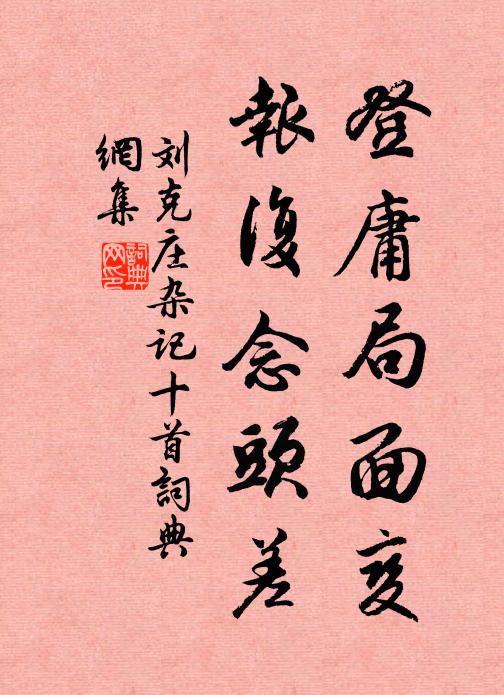 登庸局面变
報復念頭差
刘克庄杂记十首詞典
網集
詞典
网印